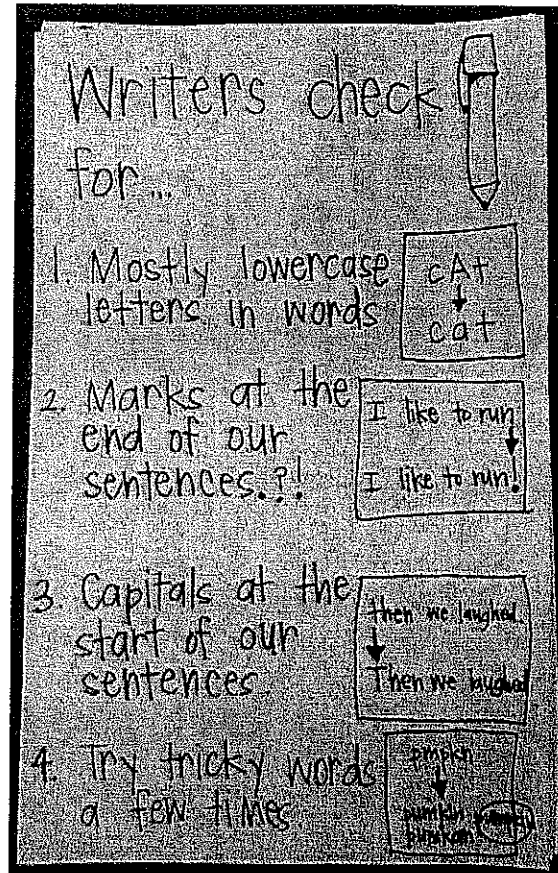 Writers check
for...
1. Mostly lowercase
letters in words
cAt
cat
2. Marks at the
end of our
sentences.?!
I like to run
I like to run!
3. Capitals at the
start of our
sentences.
then we laughed.
Then we laughed
4. Try tricky words
a few times
pmpkn